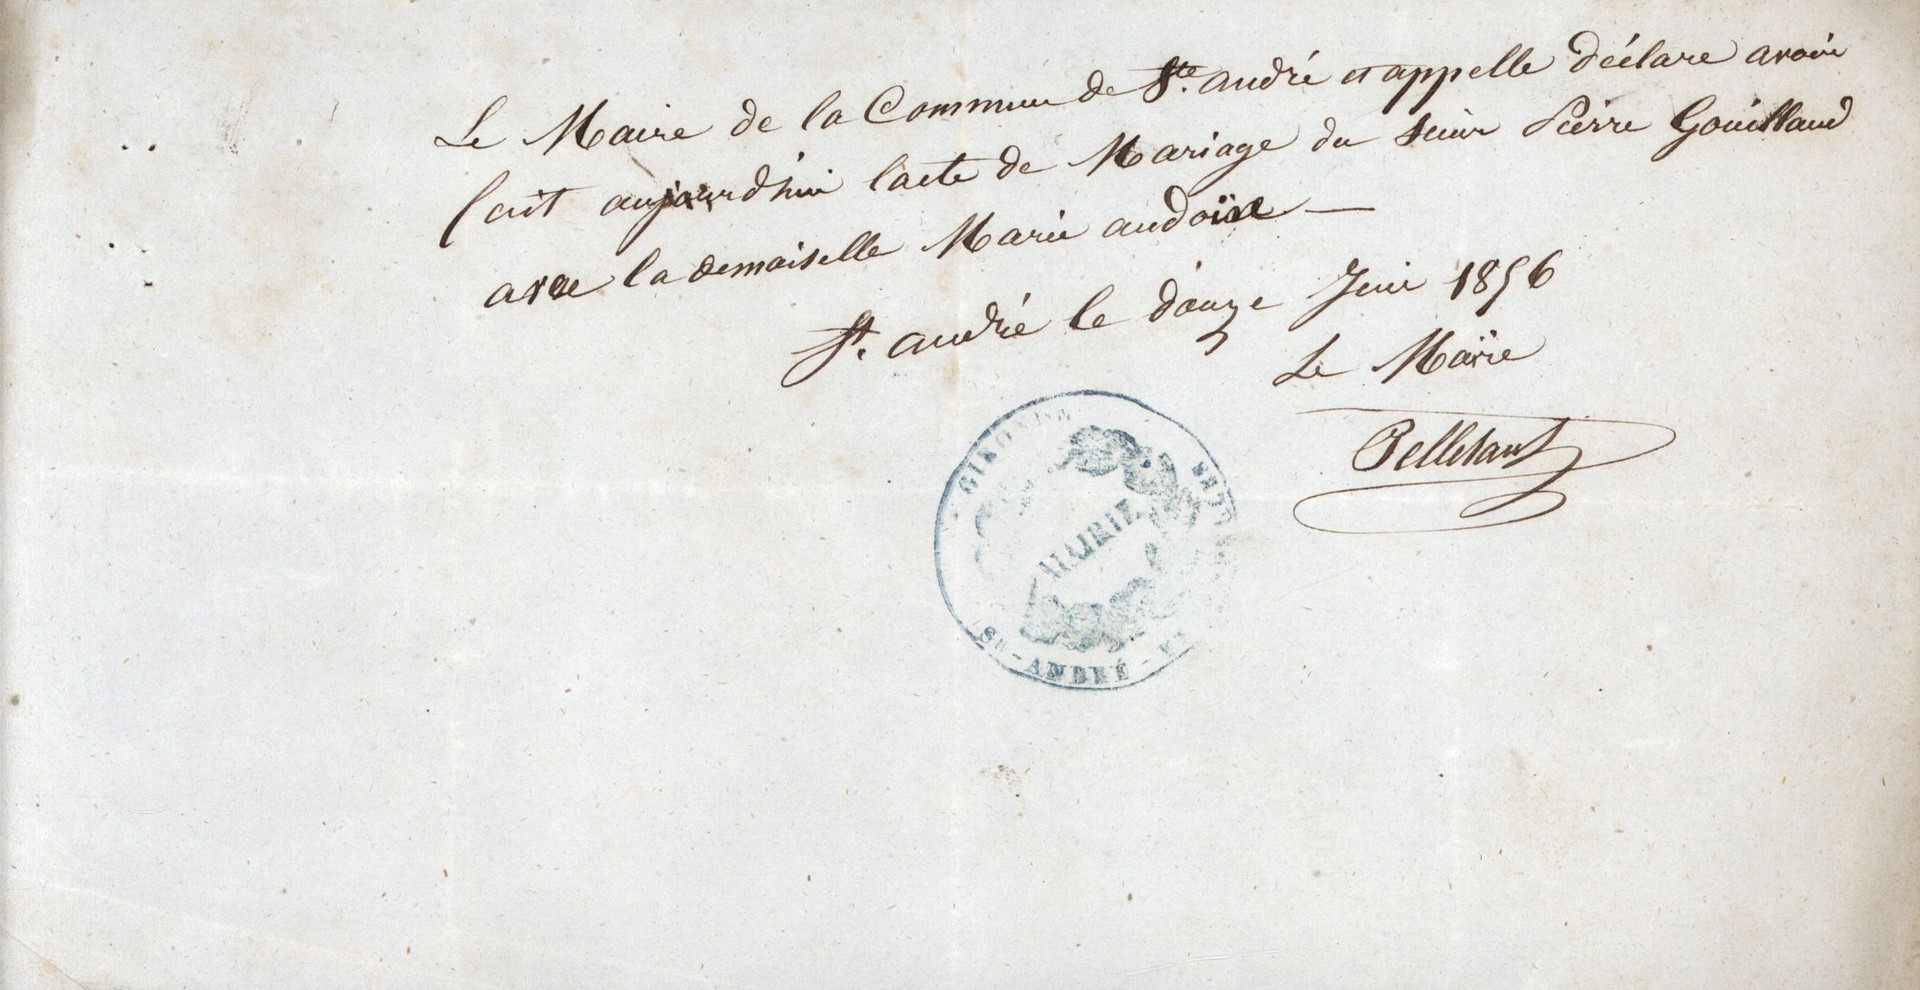 Le Maire de la Commune de Ste. andré et appelle déclare avoir
fait aujourd'hui l'acte de Mariage du sieur Pierre Gouilland
avec la demoiselle Marie audoire —
St. andré le douze Juin 1856
Le Maire
Pelletant
GIRONDE
MAIRIE
ST-ANDRÉ-